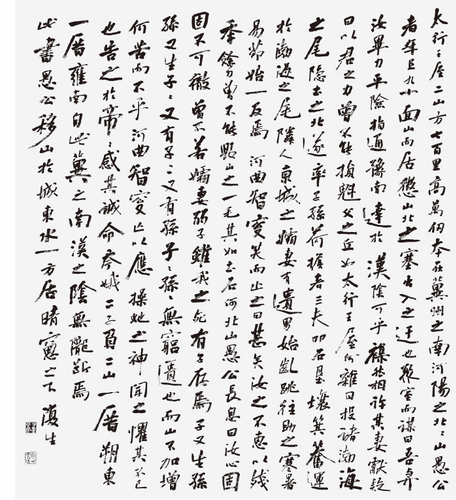 太行王屋二山方七百里高萬仞本在冀州之南河陽之北北山愚公
者年且九十面山而居懲山北之塞出入之迂也聚室而謀曰吾與
汝畢力平險指通豫南達於漢陰可乎雜然相許其妻獻疑
曰以君之力曾不能損魁父之丘如太行王屋何雜曰投諸渤海
之尾隱土之北遂率子孫荷擔者三夫叩石墾壤箕畚運
於渤海之尾隣人京城之孀妻有遺男始齔跳往助之寒暑
易節始一反焉河曲智叟笑而止之曰甚矣汝之不惠以殘
年餘力曾不能毀山之一毛其如土石何北山愚公長息曰汝心固
固不可徹曾不若孀妻弱子雖我之死有子存焉子又生孫
孫又生子々又有子々又有孫子々孫々無窮匱也而山不加增
何苦而不平河曲智叟亡以應操蛇之神聞之懼其不已
也告之於帝々感其誠命夸娥二子負二山一厝朔東
一厝雍南自此冀之南漢之陰無隴斷焉
此書愚公移山於城東水一方居晴窗之下 復生